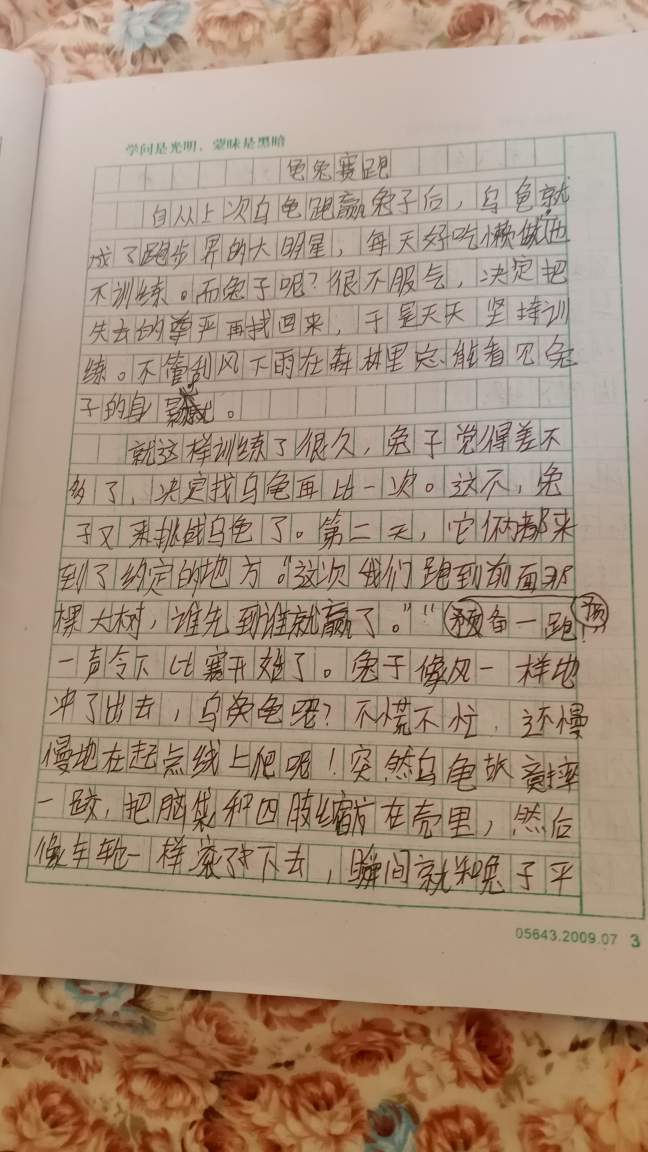 学问是光明，蒙昧是黑暗
龟兔赛跑
自从上次乌龟跑赢兔子后，乌龟就
成了跑步界的大明星，每天好吃懒做也
不训练。而兔子呢？很不服气，决定把
失去的尊严再找回来，于是天天坚持训
练。不管刮风下雨在森林里总能看见兔
子的身影。
就这样训练了很久，兔子觉得差不
多了，决定找乌龟再比一次。这不，兔
子又来挑战乌龟了。第二天，它俩都来
到了约定的地方。“这次我们跑到前面那
棵大树，谁先到谁就赢了。”“预备一跑！”
一声令下比赛开始了。兔子像风一样地
冲了出去，乌龟呢？不慌不忙，还慢
慢地在起点线上爬呢！突然乌龟故意摔
一跤，把脑袋和四肢缩在壳里，然后
像车轮一样滚了下去，瞬间就和兔子平
05643.2009.07 3